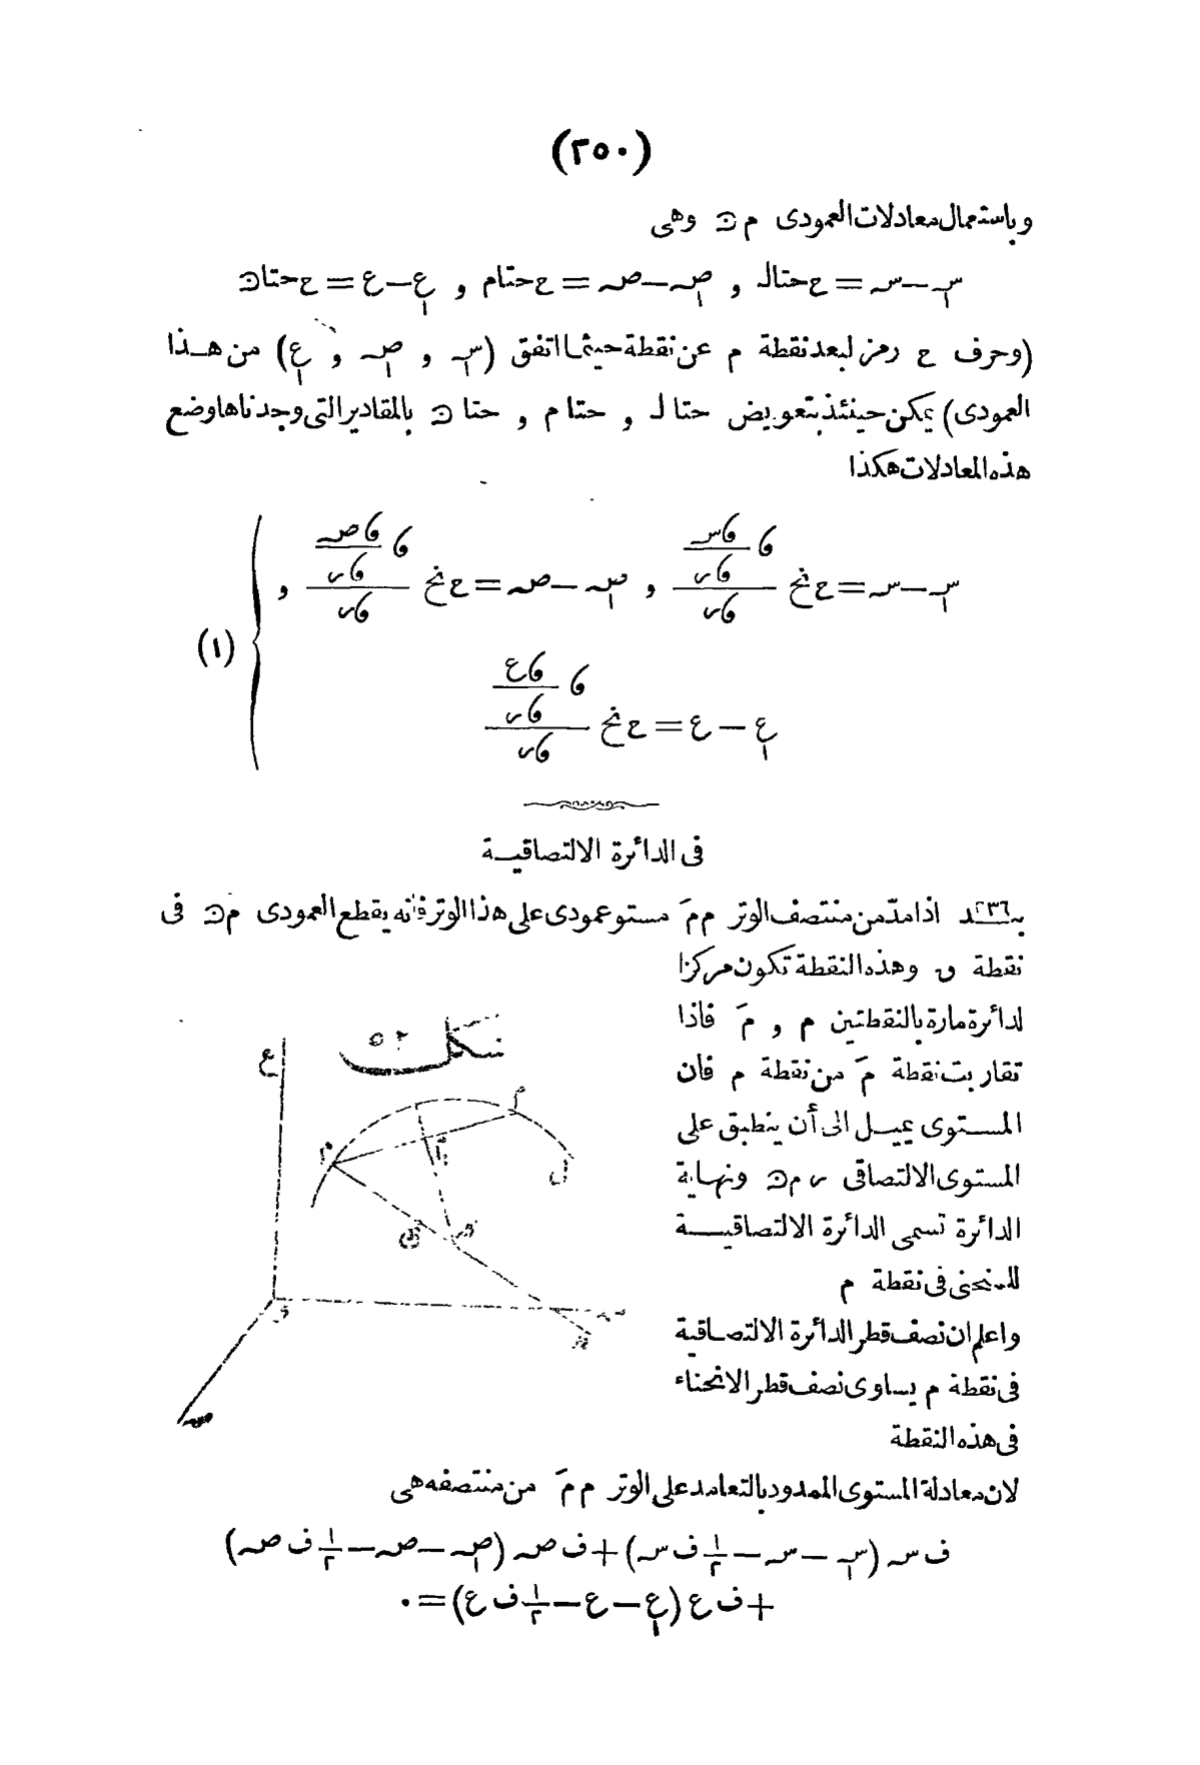 (٢٥٠)
وباستعمال معادلات العمودى م ن وهى
س١ — س = ع حتال و ص١ — ص = ع حتام و ع١ — ع = ع حتان
(وحرف ع رمز لبعد نقطة م عن نقطة حيثما اتفق (س١ و ص١ و ع١) من هــذا
العمودى) يمكن حينئذ بتعويض حتا ل و حتا م و حتا ن بالمقادير التى وجدناها وضع
هذه المعادلات هكذا
(١)
فى الدائرة الالتصاقيــة
اذا مدّ من منتصف الوتر م مَ مستو عمودى على هذا الوتر فانه يقطع العمودى م ن فى
نقطة ق وهذه النقطة تكون مركزا
لدائرة مارة بالنقطتين م و مَ فاذا
تقاربت نقطة مَ من نقطة م فان
المســتوى يميــل الى أن ينطبق على
المستوى الالتصاقى م ن ونهاية
الدائرة تسمى الدائرة الالتصاقيــــة
للمنحنى فى نقطة م
واعلم ان نصف قطر الدائرة الالتصاقية
فى نقطة م يساوى نصف قطر الانحناء
فى هذه النقطة
شكل ٥٢
ع
لان معادلة المستوى الممدود بالتعامد على الوتر م مَ من منتصفه هى
ف س (س١ — س — ١/٢ ف س) + ف ص (ص١ — ص — ١/٢ ف ص)
+ ف ع (ع١ — ع — ١/٢ ف ع) = ٠